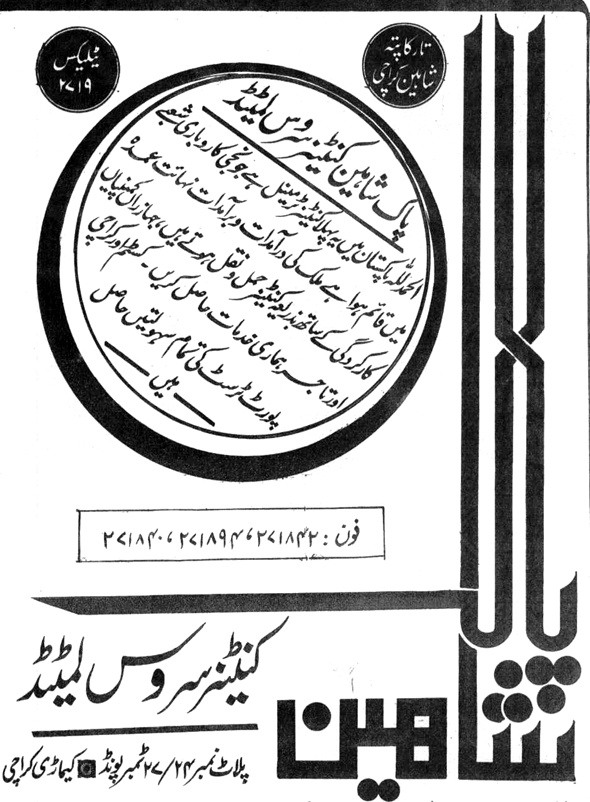 تار کا پتہ
شاہین کراچی
ٹیلیکس
۲۷۱۹
پاک شاہین کنٹینر سروس لمیٹڈ
الحمدللہ پاکستان میں یہ پہلا کنٹینر ٹرمینل ہے جو نجی کاروباری شعبے
میں قائم ہوا ہے ملک کی درآمدات و برآمدات نہائت عمدہ
کارکردگی کے ساتھ بذریعہ کنٹینر حمل و نقل ہوتے ہیں، جہازراں کمپنیاں
اور تاجر ہماری خدمات حاصل کریں۔ کسٹم اور کراچی
پورٹ ٹرسٹ کی تمام سہولتیں حاصل
ہیں
فون : ۲۷۱۸۴۲، ۲۷۱۸۹۴، ۲۷۱۸۴۰
پاک
شاہین
کنٹینر سروس لمٹیٹڈ
پلاٹ نمبر ۲۷/۲۴ ٹمبر پونڈ کیماڑی کراچی